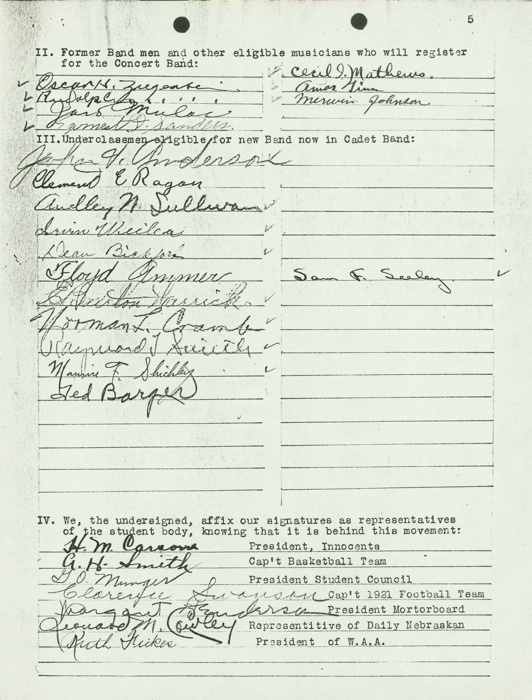 5
II. Former Band men and other eligible musicians who will register
for the Concert Band:
Oscar H.
Cecil I. Mathews.
Amos
Mervin Johnson
Sanders.
III. Underclassmen eligible for new Band now in Cadet Band:
John V. Anderson
Clement E Ragan
Audley N Sullivan
Irvin
Dean Bickford
Floyd Ammer
Sam F. Seeley
Norman L. Cramb
Raymond T Smith
Maurice F.
Ted Barger
IV. We, the undersigned, affix our signatures as representatives
of the student body, knowing that it is behind this movement:
H. M. Carson President, Innocents
G. H. Smith Cap't Basketball Team
Munger President Student Council
Clarence Swanson Cap't 1921 Football Team
Margaret Henderson President Mortorboard
Leonard M. Cowley Represenitive of Daily Nebraskan
Ruth Fickes President of W.A.A.